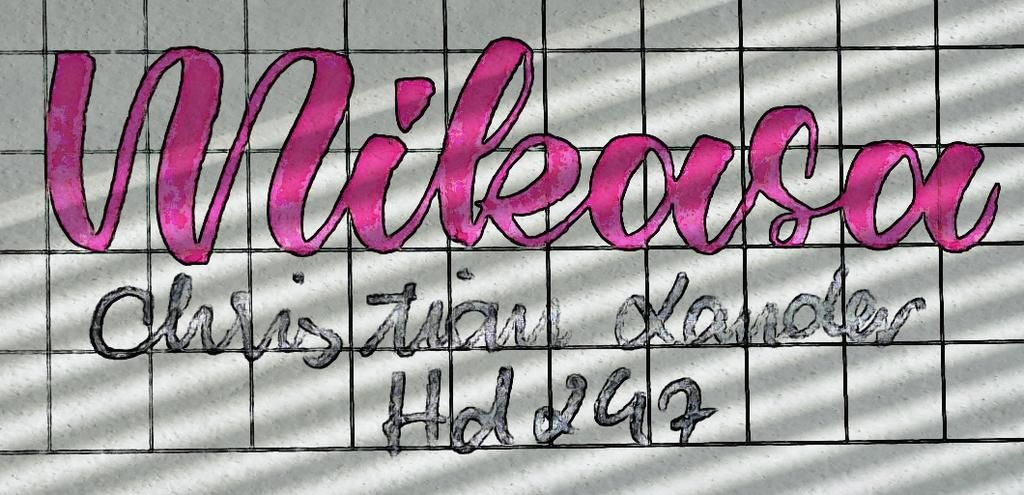 Mikasa
Christian Lander
Hd 297